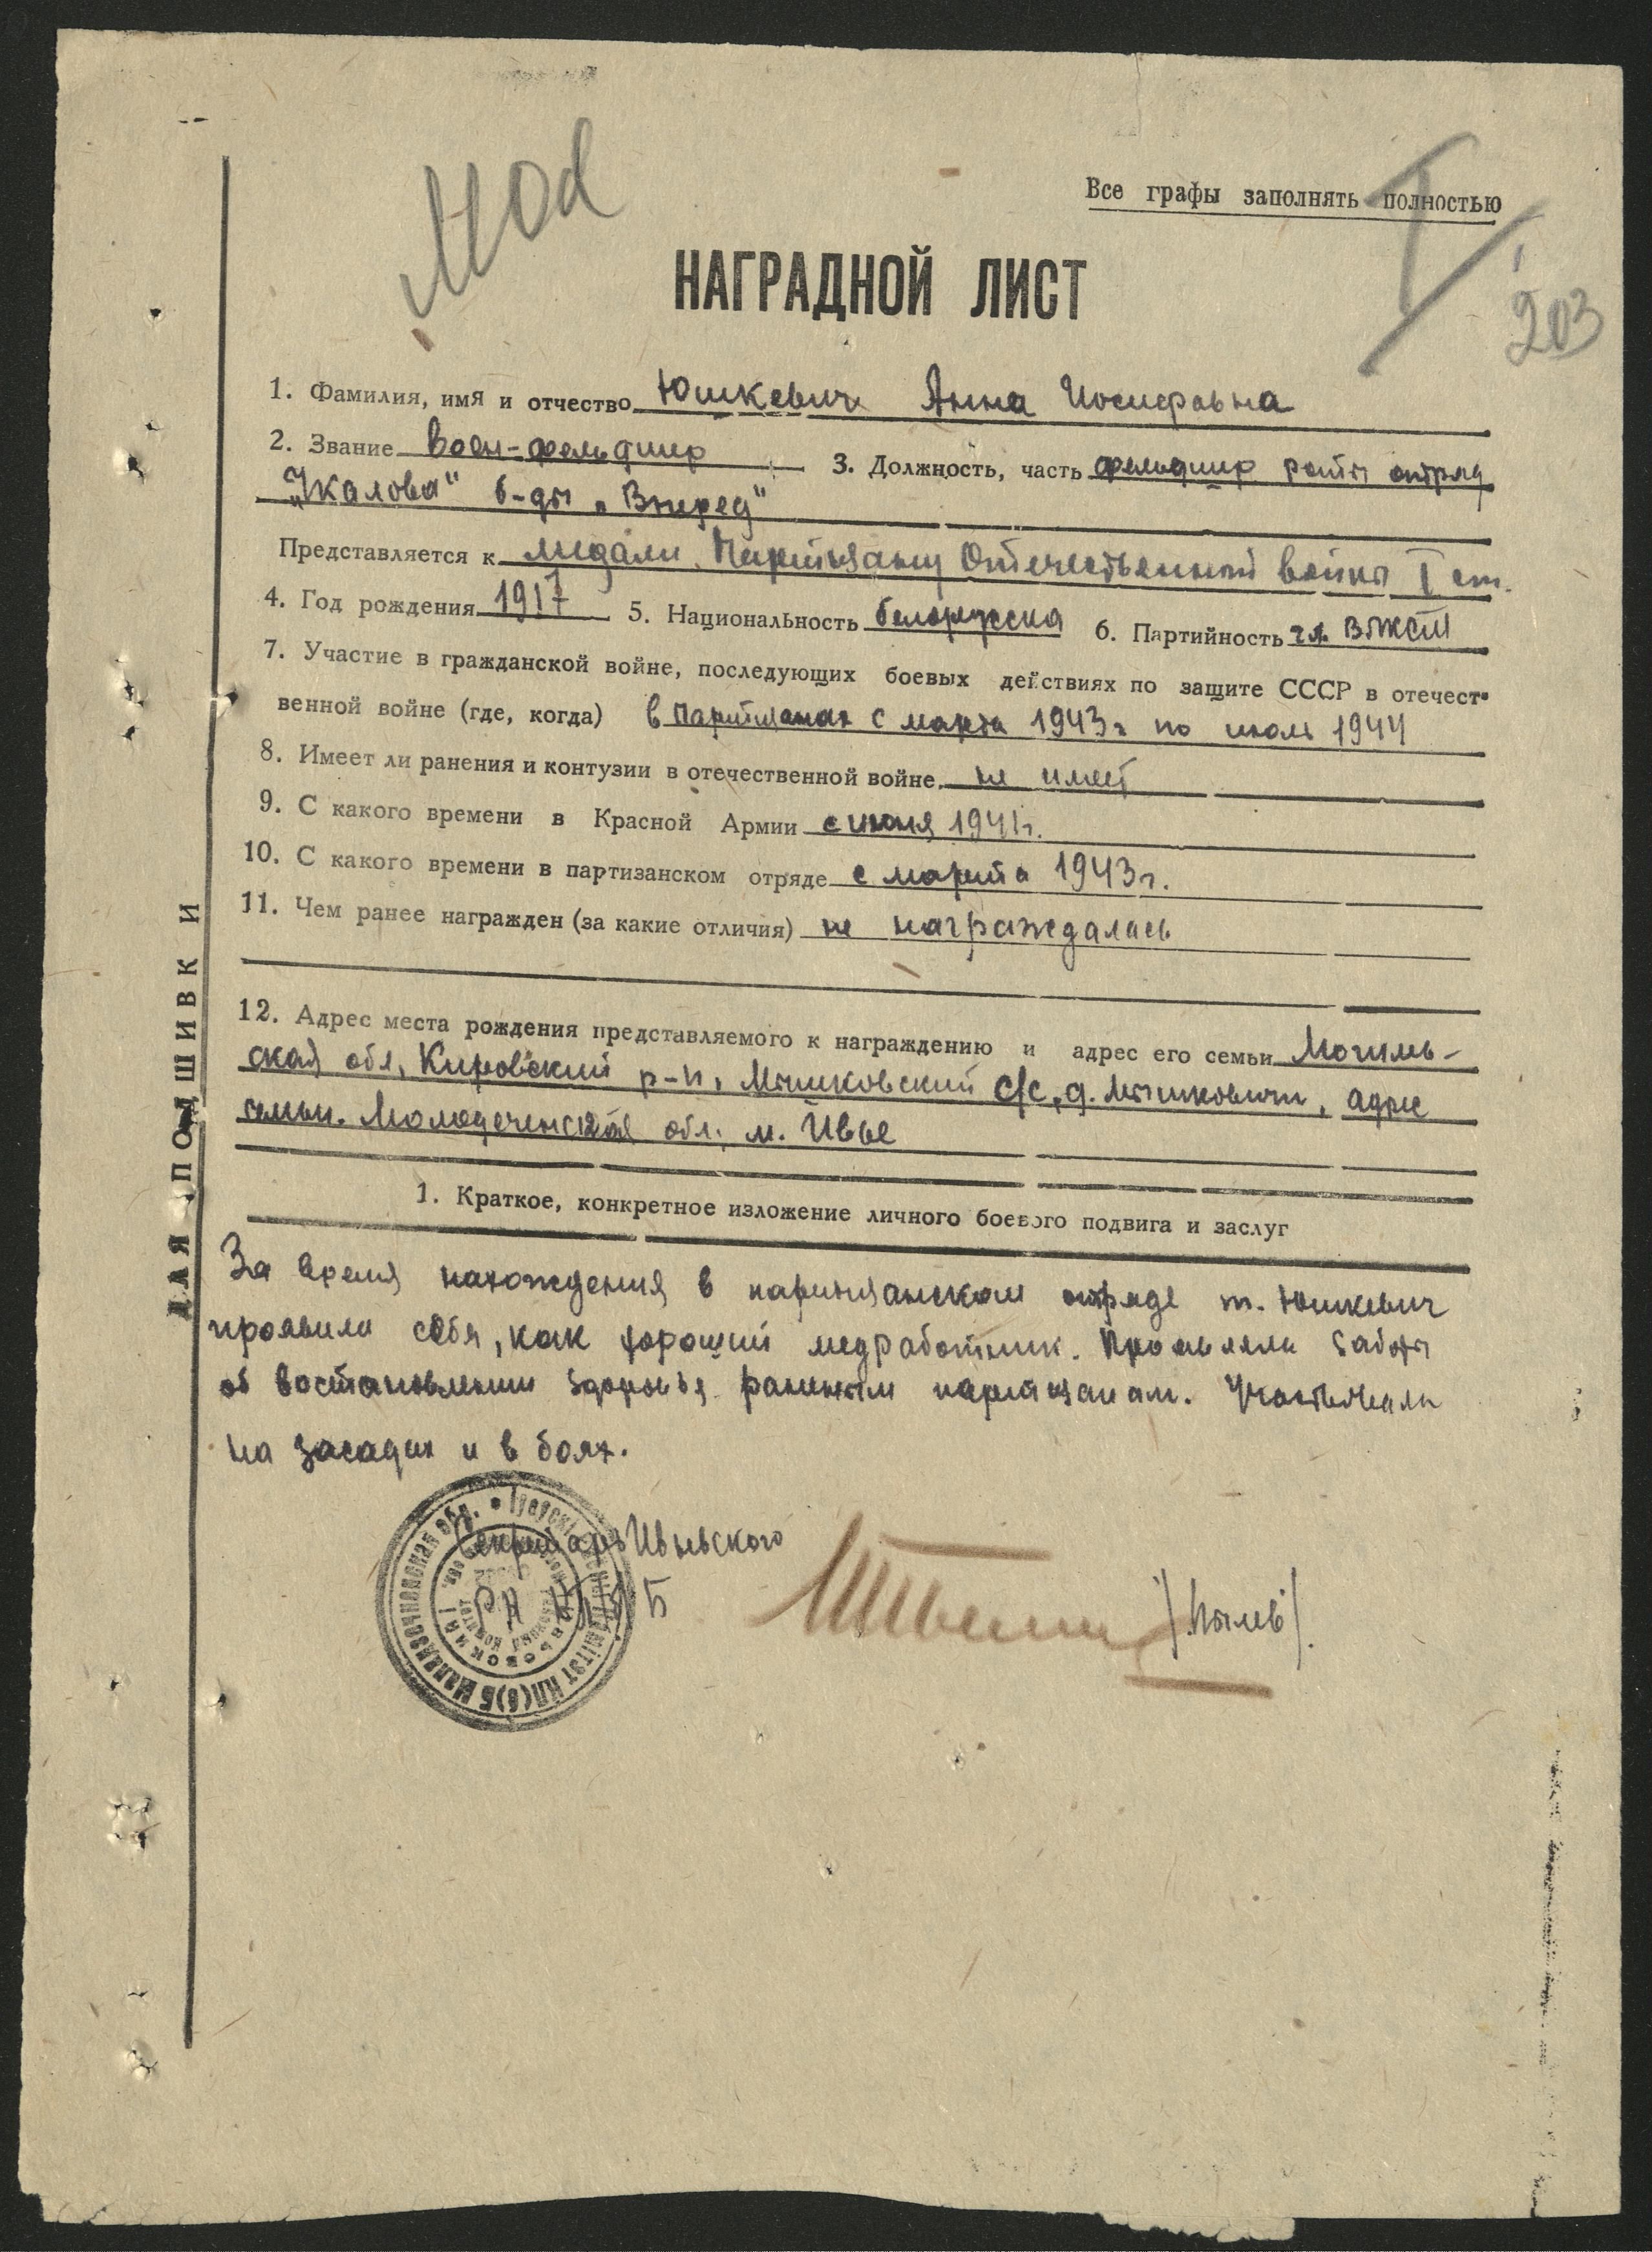 Мол
Все графы заполнять полностью
I
203
НАГРАДНОЙ ЛИСТ
1. Фамилия, имя и отчество Юшкевич Анна Иосифовна
2. Звание воен-фельдшер 3. Должность, часть фельдшер роты отряд
„Чкалова" б-ды „Вперед"
Представляется к медали „Партизану Отечественной войны I ст.
4. Год рождения 1917 5. Национальность белорусска 6. Партийность чл. ВЛКСМ
7. Участие в гражданской войне, последующих боевых действиях по защите СССР в отечест-
венной войне (где, когда) в партизанах с марта 1943г по июль 1944
8. Имеет ли ранения и контузии в отечественной войне не имеет
9. С какого времени в Красной Армии с июня 1941г.
10. С какого времени в партизанском отряде с марта 1943г.
11. Чем ранее награжден (за какие отличия) не награждалась
12. Адрес места рождения представляемого к награждению и адрес его семьи Могилев-
ская обл, Кировский р-н, Мышковский с/с, д. Мышковичи, адрес
семьи. Молодеченская обл. м. Ивье
1. Краткое, конкретное изложение личного боевого подвига и заслуг
За время нахождения в партизанском отряде т. Юшкевич
проявила себя, как хороший медработник. Проявляла заботы
об востановлении здоровья раненым партизанам. Участвовала
на засадах и в боях.
Секретарь Ивьевского
РК КП(б)Б
/Пылев/.
ДЛЯ ПОДШИВКИ